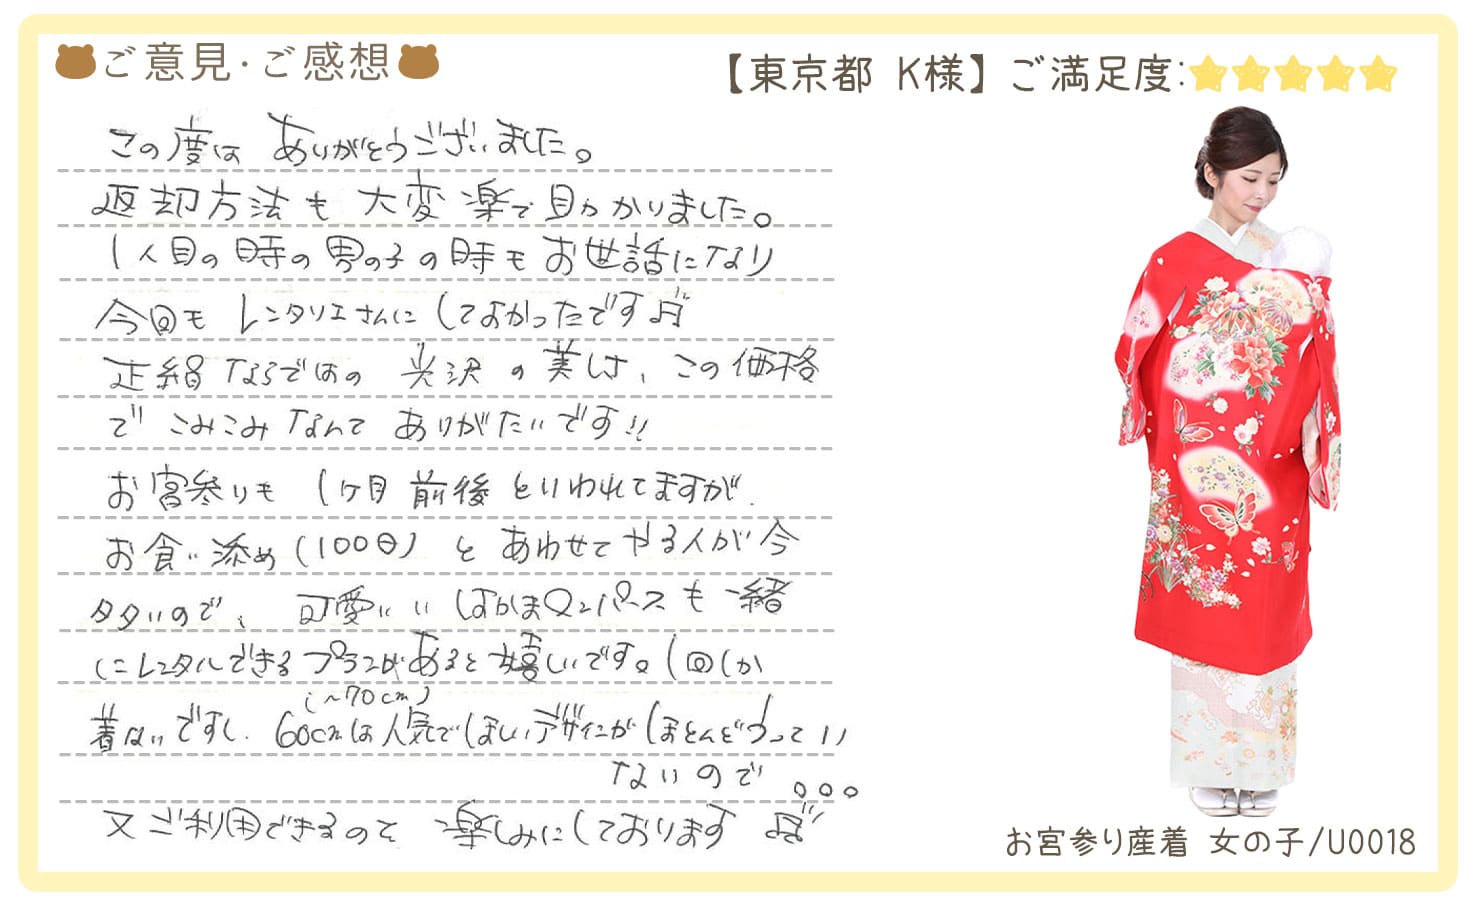 ご意見・ご感想
【東京都 K様】ご満足度:
この度は ありがとうございました。
返却方法も 大変 楽で 助かりました。
1人目の時の男の子の時も お世話になり
今回も レンタリエさんに してよかったです♫
正絹ならではの 光沢の美しさ、この価格
で こみこみなんて ありがたいです!!
お宮参りも 1ヶ月前後 といわれてますが、
お食い添め(100日) と あわせて やる人が 今
多いので、可愛いい はかまロンパースも 一緒
にレンタルできるプランがあると 嬉しいです。1回しか
(~70cm)
着ないですし、60cmは人気でほしいデザインがほとんどうってい
ないので 。。。
又ご利用できるので 楽しみにしております ♫
お宮参り産着 女の子/U0018